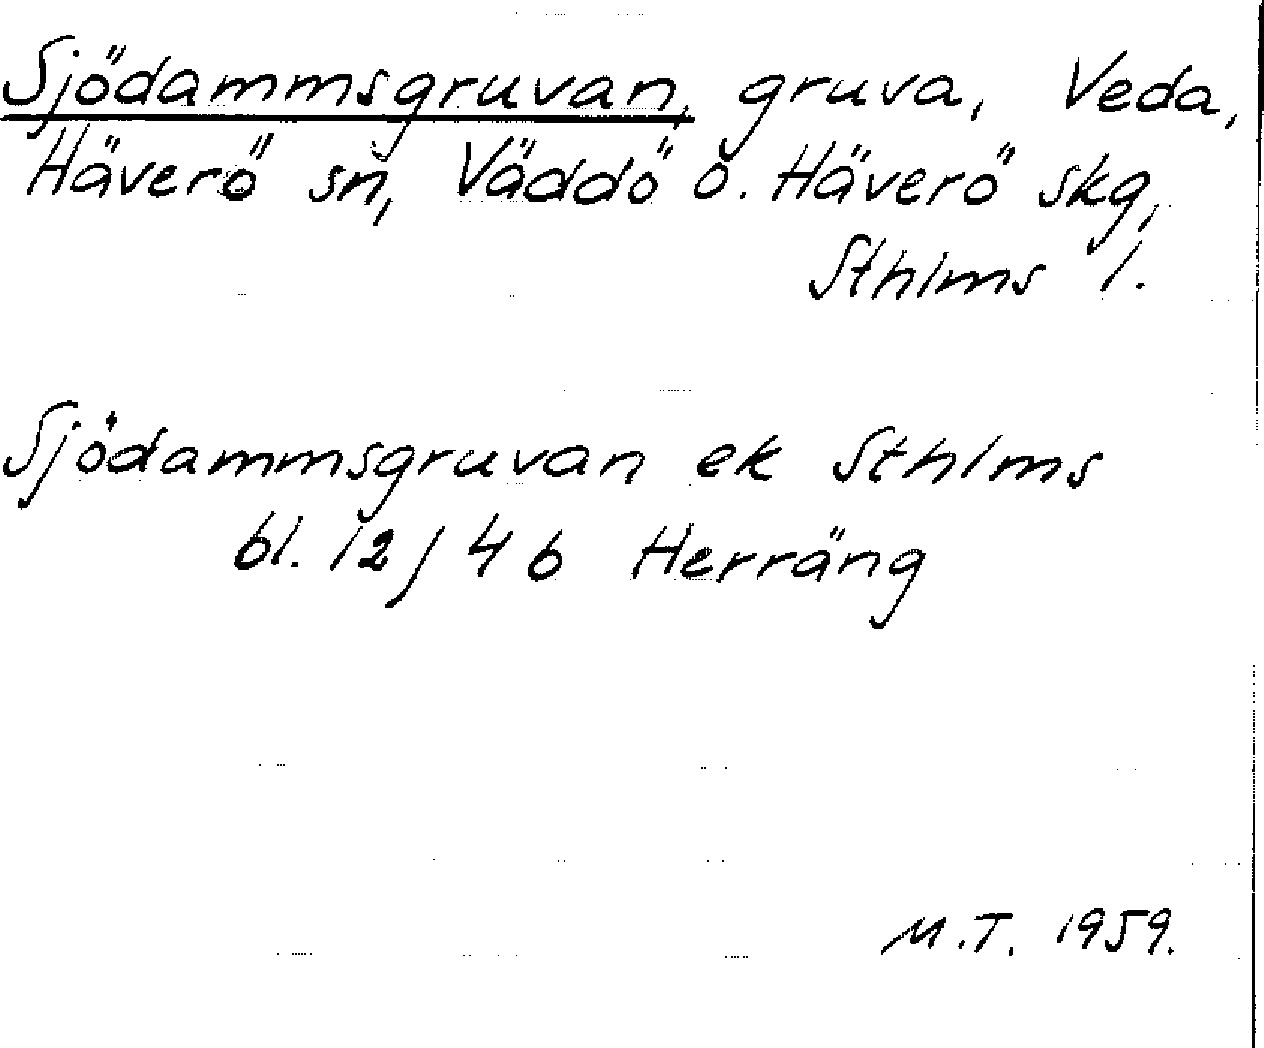 Sjödammsgruvan, gruva, Veda,
Häverö sn, Väddö o. Häverö skg,
Sthlms l.
Sjödammsgruvan ek Sthlms
bl. 12/46 Herräng
M.T. 1959.